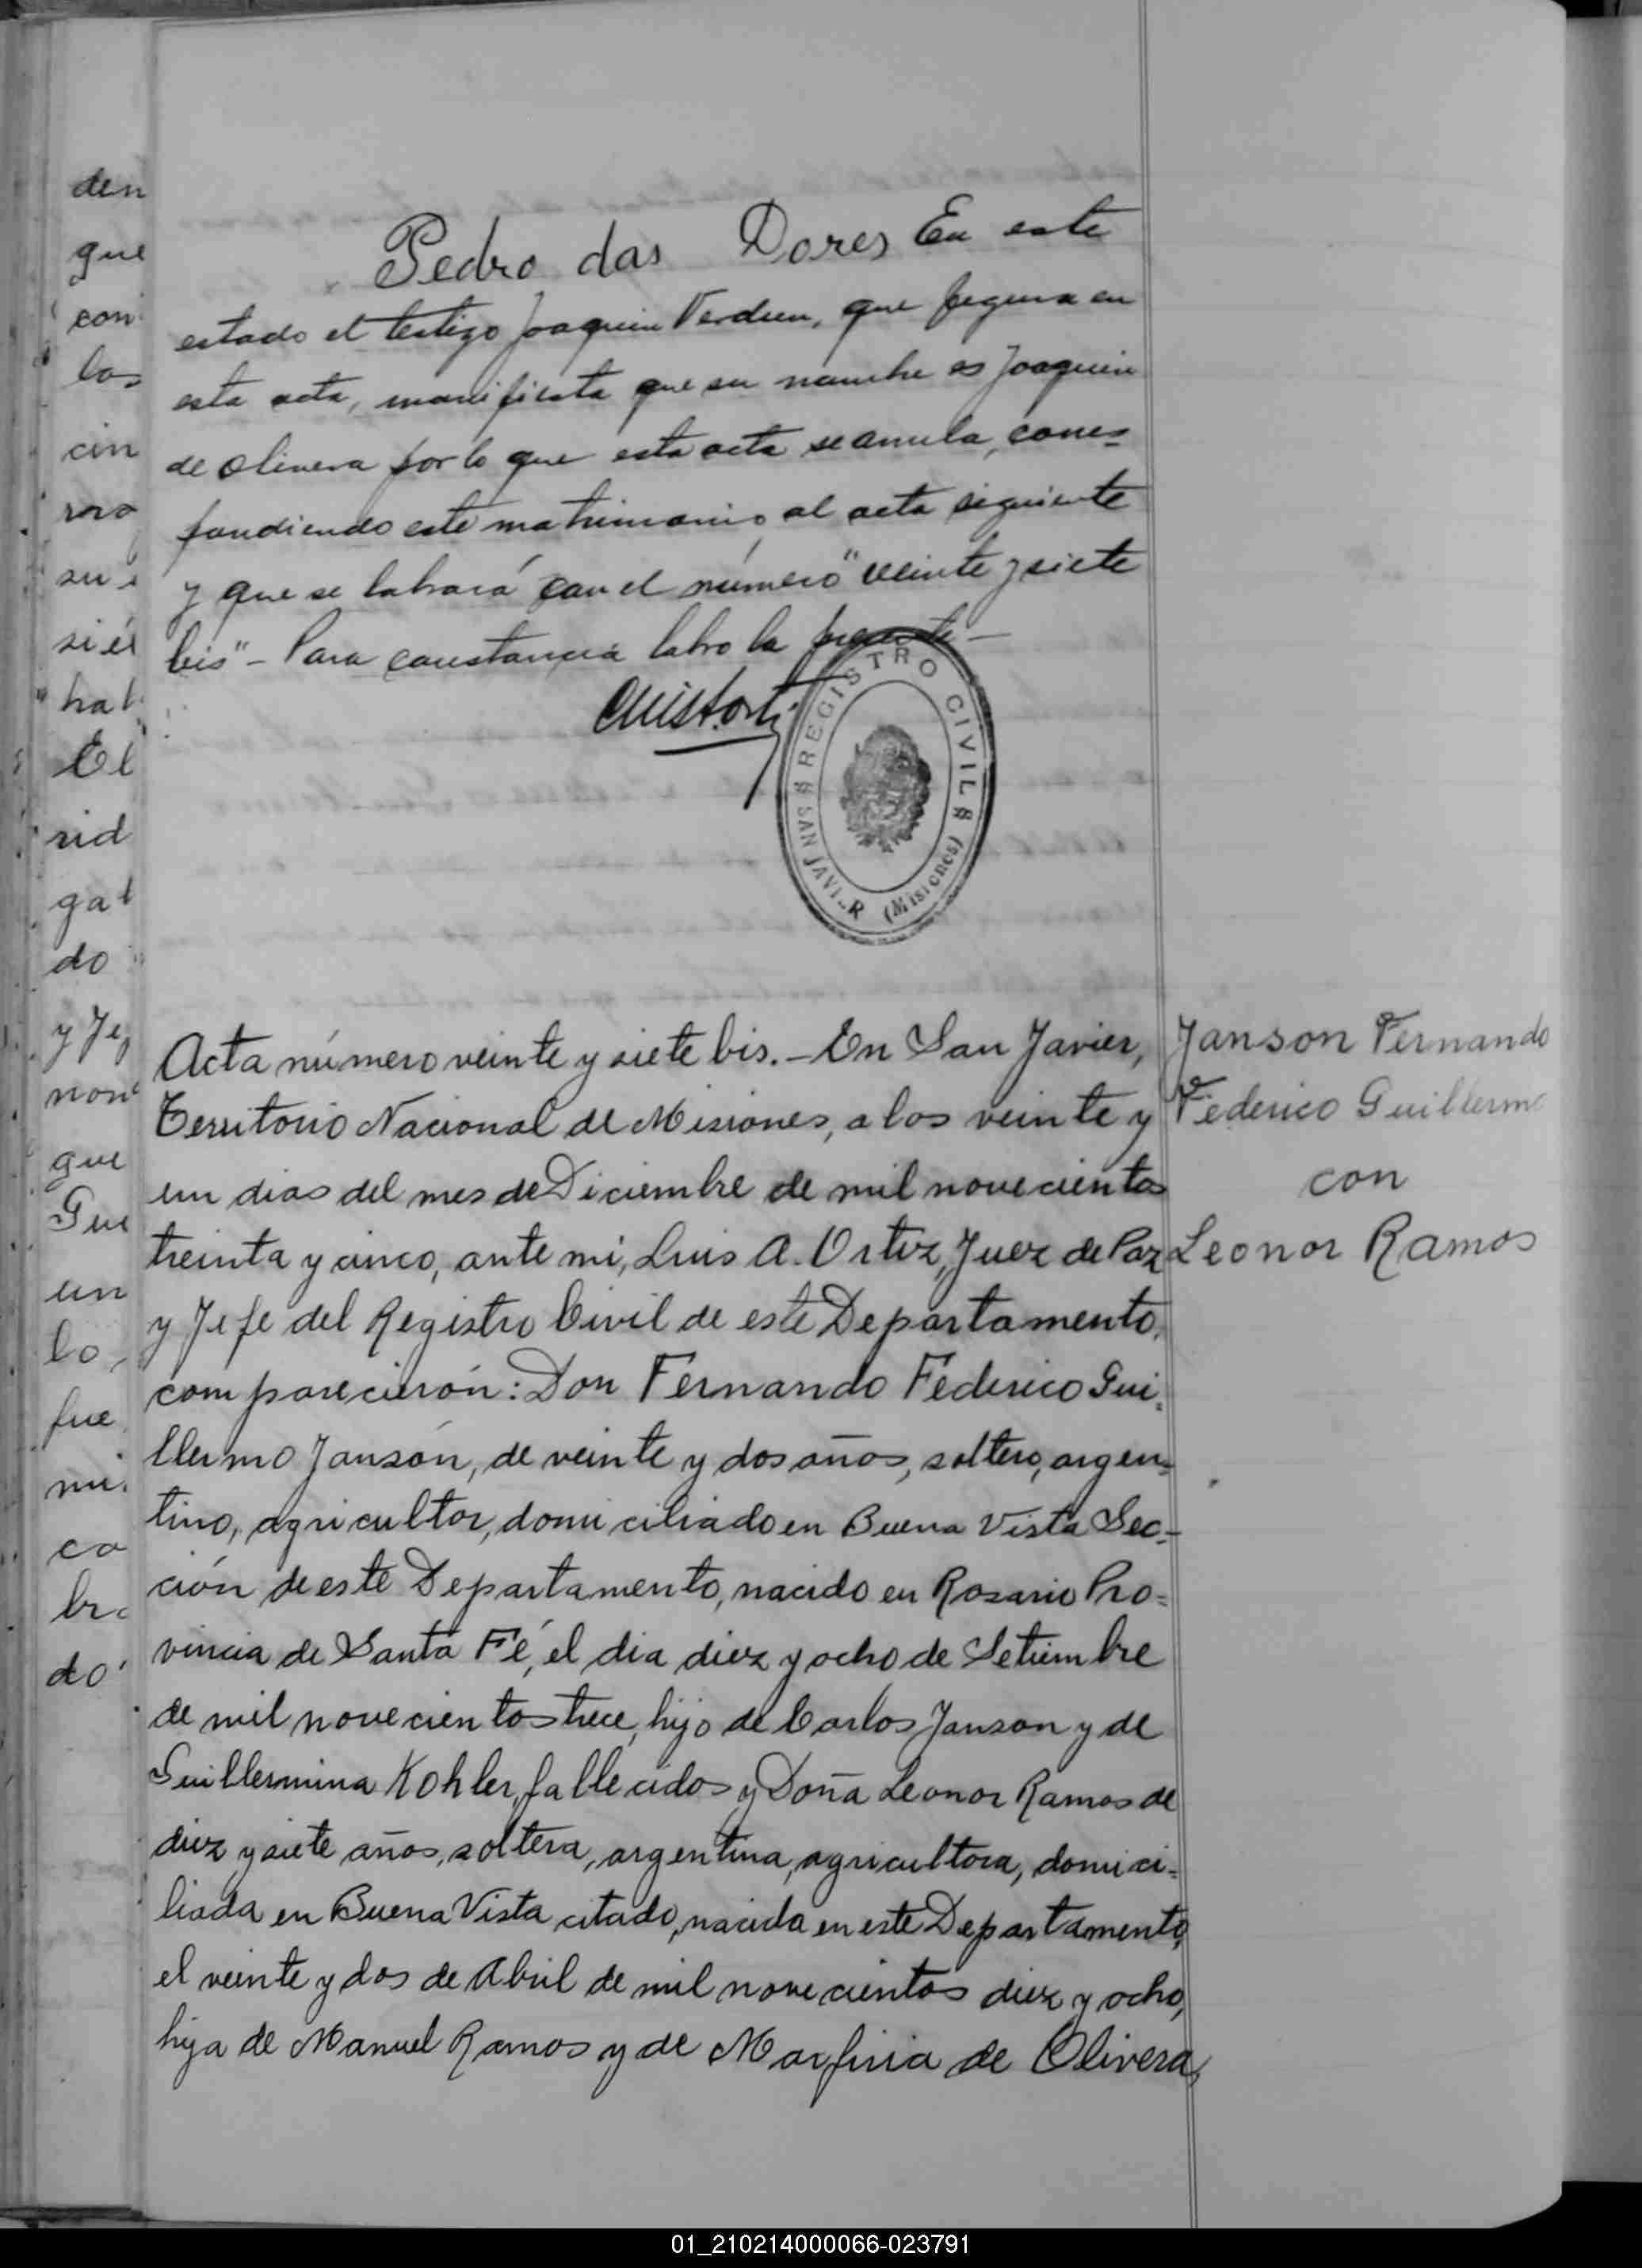 Pedro das Dores En este
estado el testigo Joaquin Verdun, que figura en
esta acta, manifiesta que su nombre es Joaquin
de Olivera por lo que esta acta se anula, corres-
pondiendo este matrimonio, al acta siguiente
y que se labrará con el número "veinte y siete
bis" - Para constancia labro la presente -
REGISTRO CIVIL
SAN JAVIER (Misiones)
Acta número veinte y siete bis. - En San Javier,
Territorio Nacional de Misiones, a los veinte y
un dias del mes de Diciembre de mil novecientos
treinta y cinco, ante mi, Luis A. Ortiz, Juez de Paz
y Jefe del Registro Civil de este Departamento,
comparecierón: Don Fernando Federico Gui-
llermo Janson, de veinte y dos años, soltero, argen-
tino, agricultor, domiciliado en Buena Vista Sec-
ción de este Departamento, nacido en Rosario Pro-
vincia de Santa Fé, el dia diez y ocho de Setiembre
de mil novecientos trece, hijo de Carlos Janson y de
Guillermina Kohler, fallecidos y Doña Leonor Ramos de
diez y siete años, soltera, argentina, agricultora, domici-
liada en Buena Vista citado, nacida en este Departamento,
el veinte y dos de Abril de mil novecientos diez y ocho,
hija de Manuel Ramos y de Marfiria de Olivera,
Janson Fernando
Federico Guillermo
con
Leonor Ramos
den
que
con
los
cin
su
hab
El
rid
gad
do
y Je
que
Gui
un
lo,
fue
mi
ca
do
01_210214000066-023791